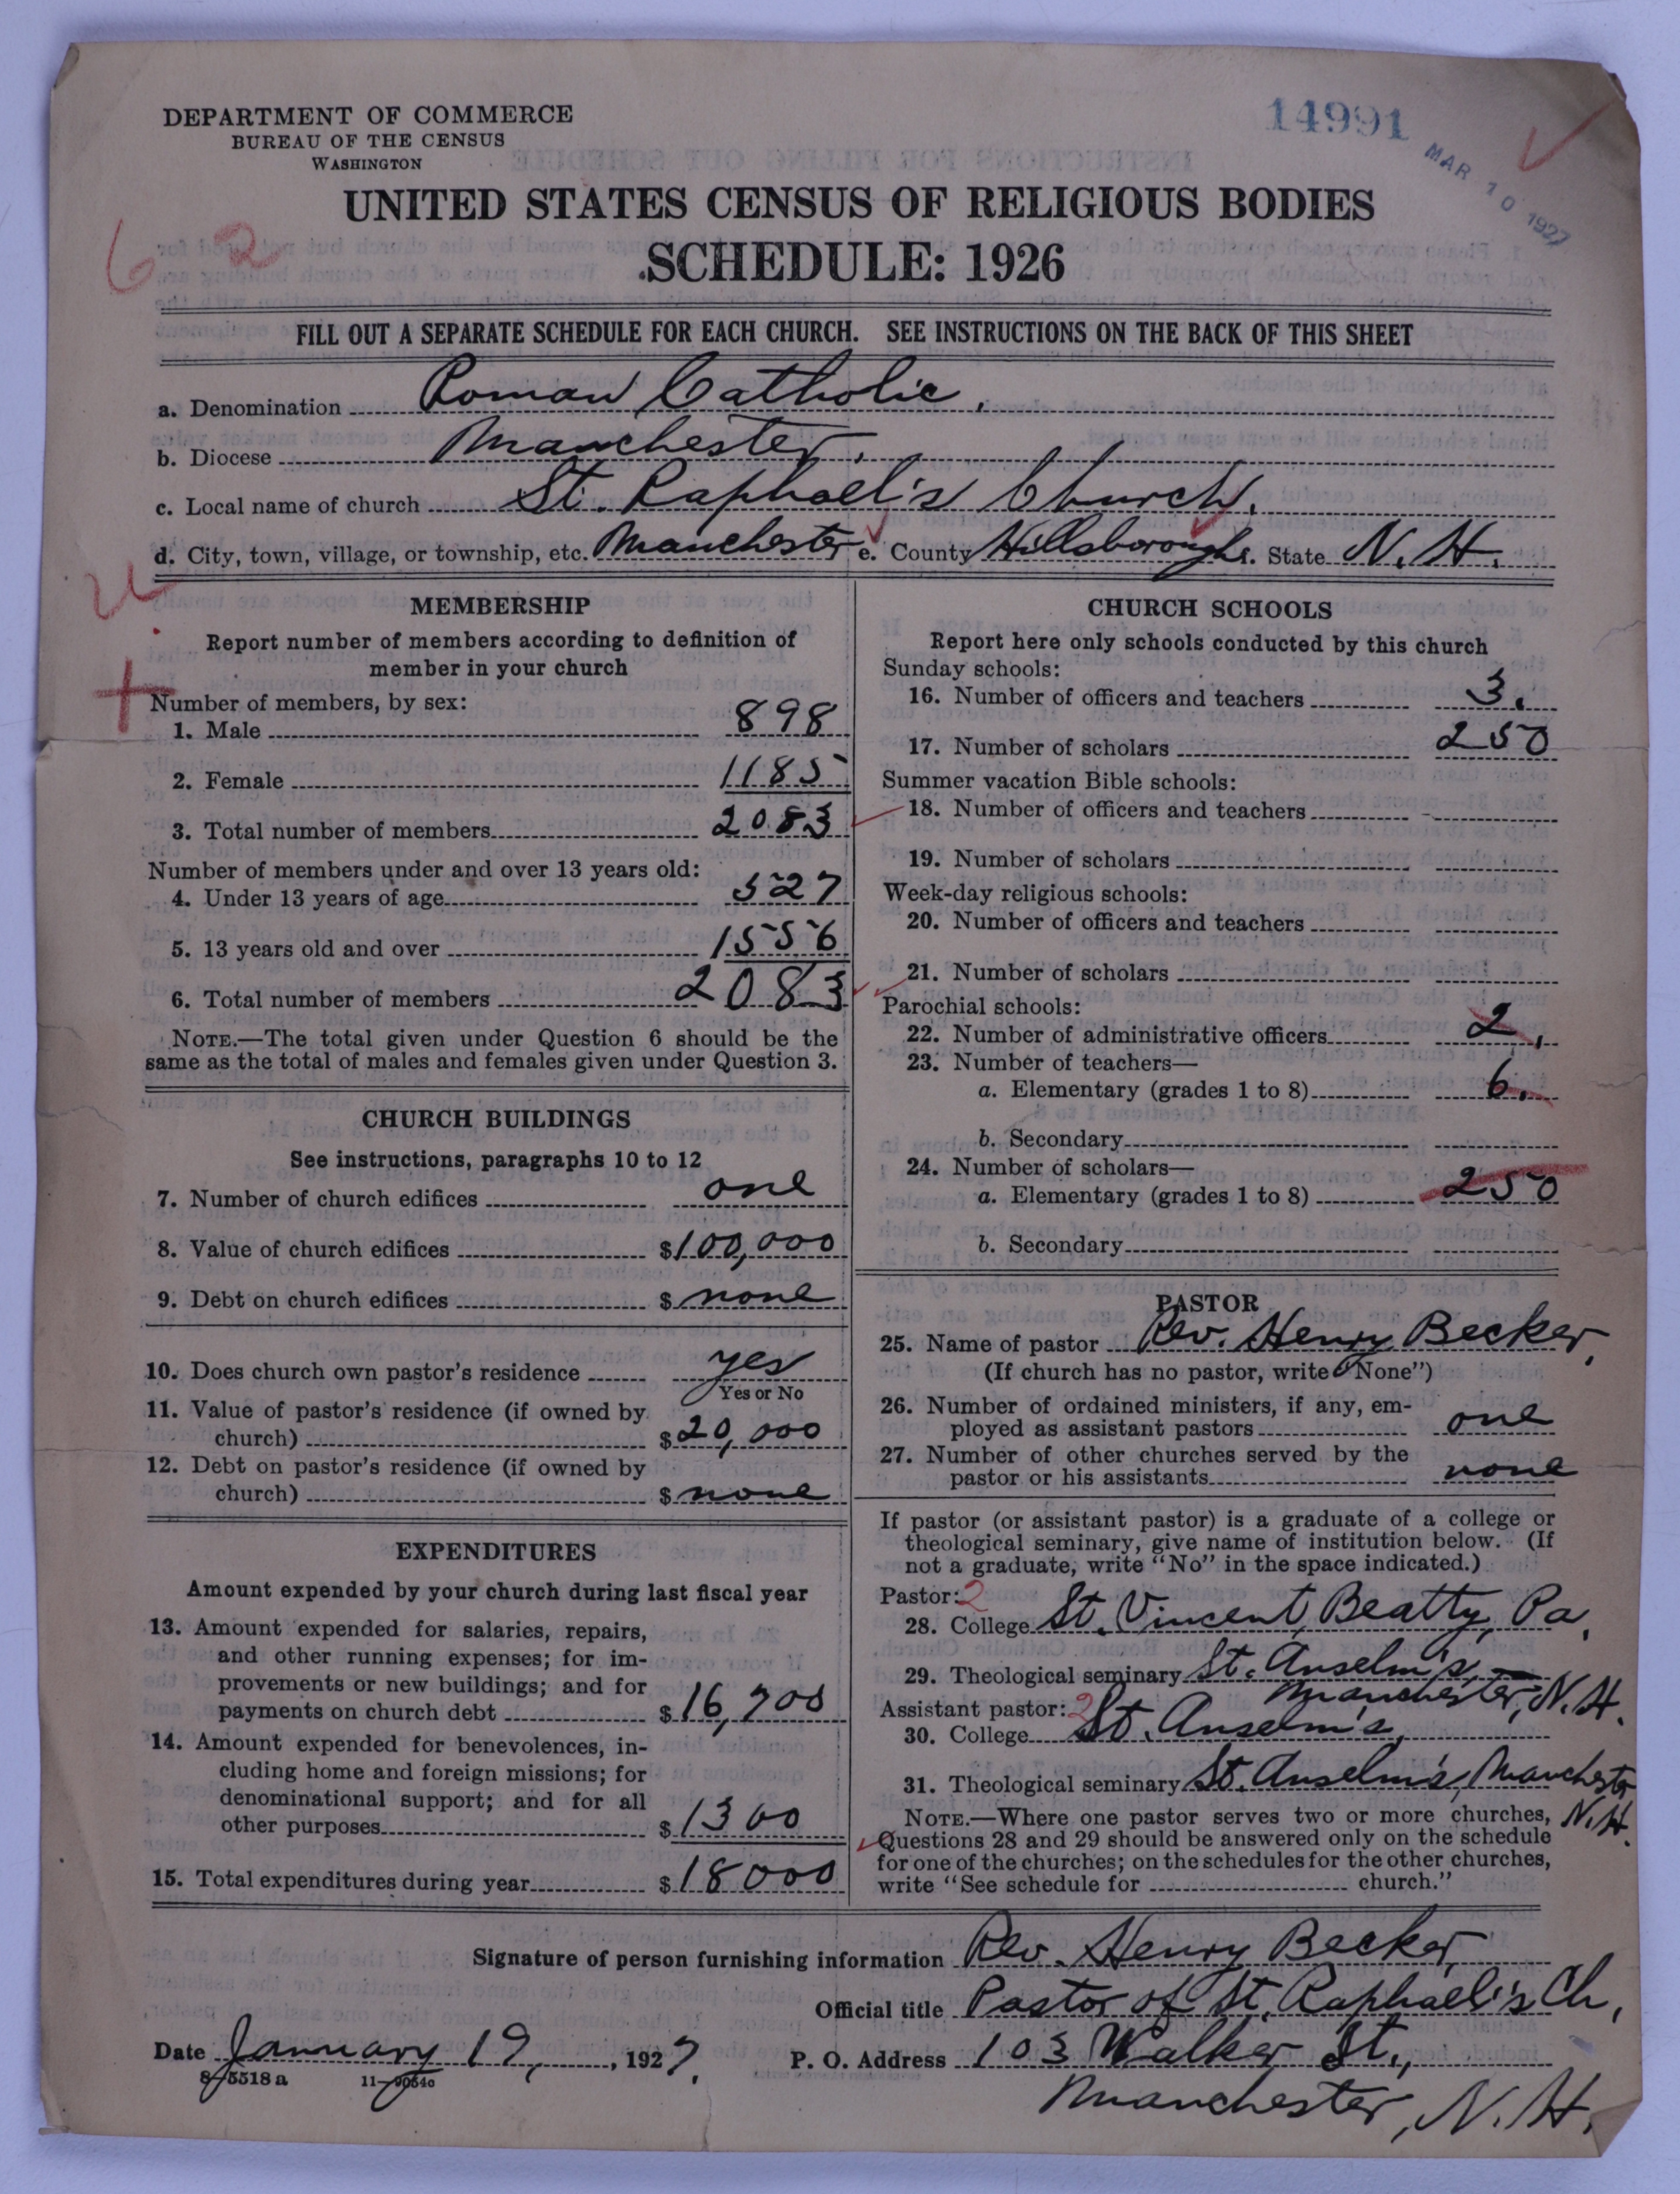 DEPARTMENT OF COMMERCE
BUREAU OF THE CENSUS
WASHINGTON
14991
MAR 10 1927
UNITED STATES CENSUS OF RELIGIOUS BODIES
SCHEDULE: 1926
6 2
FILL OUT A SEPARATE SCHEDULE FOR EACH CHURCH. SEE INSTRUCTIONS ON THE BACK OF THIS SHEET
a. Denomination Roman Catholic.
b. Diocese Manchester.
c. Local name of church St. Raphael's Church.
d. City, town, village, or township, etc. Manchester e. County Hillsborough f. State N. H.
MEMBERSHIP
Report number of members according to definition of
member in your church
Number of members, by sex:
1. Male 898
2. Female 1185
3. Total number of members 2083
Number of members under and over 13 years old:
4. Under 13 years of age 527
5. 13 years old and over 1556
6. Total number of members 2083
NOTE.—The total given under Question 6 should be the
same as the total of males and females given under Question 3.
CHURCH BUILDINGS
See instructions, paragraphs 10 to 12
7. Number of church edifices one
8. Value of church edifices $100,000
9. Debt on church edifices $ none
10. Does church own pastor's residence yes
Yes or No
11. Value of pastor's residence (if owned by
church) $20,000
12. Debt on pastor's residence (if owned by
church) $ none
EXPENDITURES
Amount expended by your church during last fiscal year
13. Amount expended for salaries, repairs,
and other running expenses; for im-
provements or new buildings; and for
payments on church debt $16,700
14. Amount expended for benevolences, in-
cluding home and foreign missions; for
denominational support; and for all
other purposes $1300
15. Total expenditures during year $18000
CHURCH SCHOOLS
Report here only schools conducted by this church
Sunday schools:
16. Number of officers and teachers 3.
17. Number of scholars 250
Summer vacation Bible schools:
18. Number of officers and teachers -
19. Number of scholars
Week-day religious schools:
20. Number of officers and teachers
21. Number of scholars
Parochial schools:
22. Number of administrative officers 2.
23. Number of teachers—
a. Elementary (grades 1 to 8) 6.
b. Secondary
24. Number of scholars—
a. Elementary (grades 1 to 8) 250
b. Secondary
PASTOR
25. Name of pastor Rev. Henry Becker,
(If church has no pastor, write "None")
26. Number of ordained ministers, if any, em-
ployed as assistant pastors one
27. Number of other churches served by the
pastor or his assistants none
If pastor (or assistant pastor) is a graduate of a college or
theological seminary, give name of institution below. (If
not a graduate, write "No" in the space indicated.)
Pastor: 2
28. College St. Vincent, Beatty, Pa.
29. Theological seminary St. Anselm's,
Manchester, N. H.
Assistant pastor: 2
30. College St. Anselm's,
31. Theological seminary St. Anselm's, Manchester
N. H.
NOTE.—Where one pastor serves two or more churches,
Questions 28 and 29 should be answered only on the schedule
for one of the churches; on the schedules for the other churches,
write "See schedule for church."
Signature of person furnishing information Rev. Henry Becker,
Official title Pastor of St. Raphael's Ch.
Date January 19, 1927.
P. O. Address 103 Walker St.,
Manchester, N. H.
8—5518 a 11—9054c